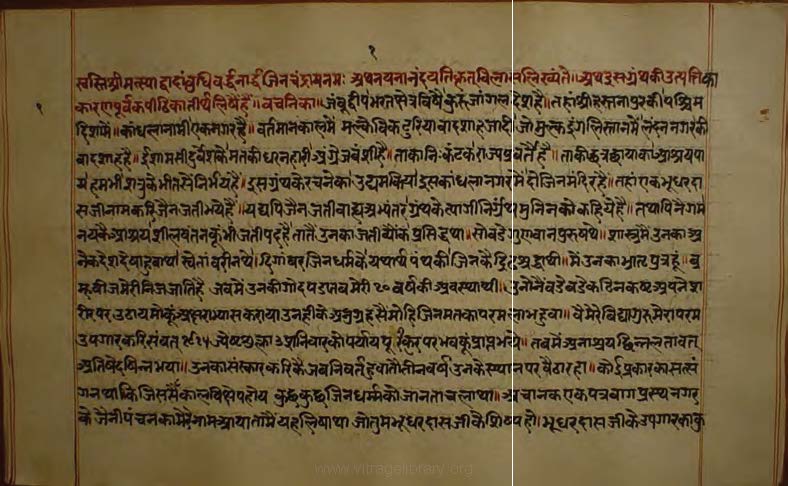 १
स्वस्तिश्रीमत्स्याद्वादांबुधिवर्द्धनार्द्धजिनचंद्रायनमः अथनयनानंदयतिकृतविलासलिख्यंते॥अथइसग्रंथकीउत्पत्तिका
कारणपूर्वकपीठिकातीर्थलिषेहैं॥वचनिका॥जंबूद्वीपभरतक्षेत्रविषैकुरुजांगलदेशहै॥तहांश्रीहस्तनापुरकीपश्चिम
१
दिशामें॥कांधलानामीएकनगरहै॥वर्तमानकालमें मल्कैविकटुरियाबादशाहजादी जोमुल्कइंगलिस्तानमेंलंदननगरकी
बादशाहहै॥ईशामसीदुर्वेशकेमतकीधरनहारी अंग्रेजबंशीहै॥ताकानिःकंटकराज्यप्रवर्तैहै॥ताकीछत्रछायाकाआश्रयपा
यहमभीशत्रुकेभीतसेंनिर्भयहैं॥इसग्रंथकेरचनेकाउद्यमकिया॥इसकांधलानगरमेंदोजिनमंदिरहैं॥तहांएकभूधरदा
सजीनामकरिजैनजतीभयेहैं॥यद्यपिजैनजतीबाह्यअभ्यंतरग्रंथकेत्यागीनिर्ग्रंथमुनिनकोकहियेहै॥तथापिनैगम
नयकेआश्रयशीलवतनकूंभीजतीपदहैतातैंउनकाजतीब्योंकप्रसिद्धथा॥सोबडेगुणवानपुरुषथे॥शास्त्रमेंउनकाअ
नेकदेशदेषादुवाथा॥स्वेतांबरीनथे॥दिगांबरजिनधर्मकेयथार्थपंथकीजिनकैदृढश्रद्धाथी॥मेंउनकाभ्रातृपुत्रहूं॥ब्रा
म्हणीजमेरीनिजजातिहै जबमेंउनकीगोदपडातबमेरी१०वर्षकीअवस्थाथी॥उनोंनेबडेबडेकठिनकष्टअपनेश
रीरपरउठायमोकूंअक्षराभ्यासकराया॥उनहीकेअनुग्रहसैंमोहिजिनमतकापरमलाभहुवा॥वैमेरेविद्यागुरुमेरापरम
उपगारकरिसंबत१९१५ज्येष्ठशुक्ला३शनिवारकोपर्यायपूरीकरपरभवकूंप्राप्तभये॥तबमेंअनाश्रयछिन्नलतावत्
अतिषेदषिन्नभया॥उनकासंस्कारकरिकेंजबनिवर्तहुवातौतीनवर्षउनकेस्थानपरबैठारहा॥कोईप्रकारकासत्सं
गनथाकिजिससैंकालविक्षेपहोय कुछकुछजिनधर्मकोजानताचलाथा॥अचानकएकपत्रबागप्रस्थनगर
केजैनीपंचनकामेरेनामआयातामेंयहलिषाथा जोतुमभूधरदासजीकेशिष्यहो॥भूधरदासजीकेउपगारकाकु
www.vitragelibrary.org